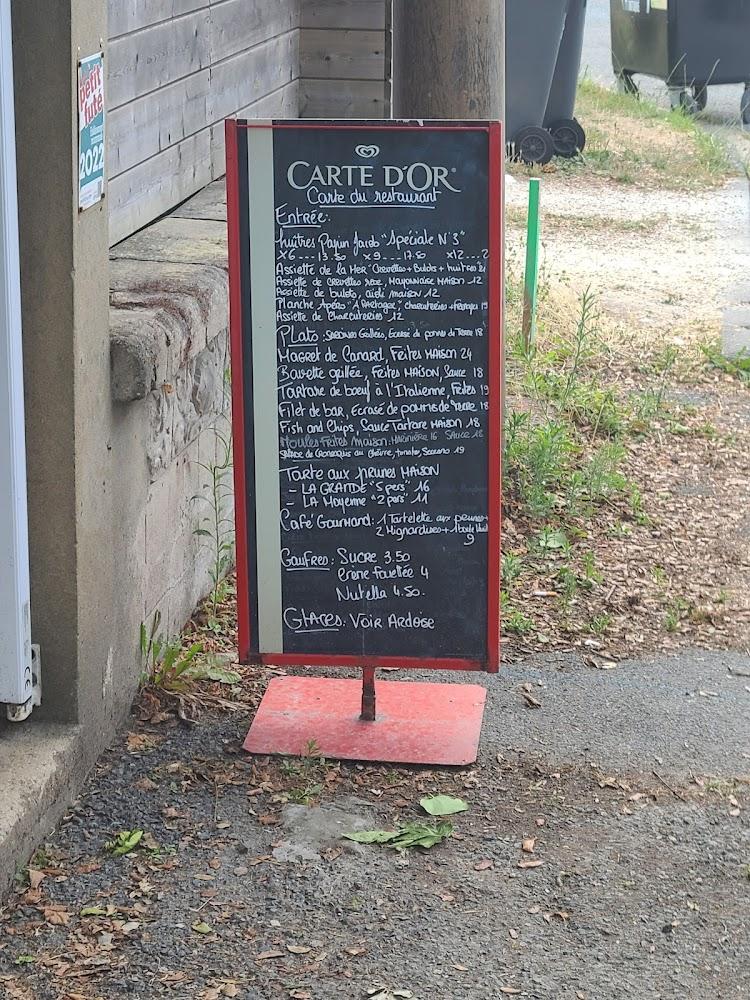 petit
futé
2022
CARTE D'OR
Carte du restaurant
Entrée:
huîtres Papin Jacob "Spéciale N°3"
x6 --- 13.50 x9 --- 17.50 x12 ---
Assiette de la Mer "Crevettes + Bulots + huîtres 21
Assiette de Crevettes rose, Mayonnaise Maison 12
Assiette de bulots, aïoli maison 12
Planche Apéro "A Partager" charcuteries + fromages 19
Assiette de Charcuteries 12
Plats: Sardines Grillées, Ecrasé de pomme de Terre 18
Magret de Canard, Frites MAISON 24
Bavette grillée, Frites MAISON, Sauce 18
Tartare de boeuf à l'Italienne, Frites 19
Filet de bar, Ecrasé de pommes de Terre 18
Fish and Chips, Sauce Tartare MAISON 18
Moules Frites Maison: MARINIÈRE 16 SAUCE 18
Salade de Croustous au Chèvre, tomate, 19
Tarte aux prunes MAISON
- LA GRANDE "5 pers" 16
- LA Moyenne "2 pers" 11
Café Gourmand: 1 Tartelette aux prunes+
2 Mignardises + 1 boule
9
Gaufres: SUCRE 3.50
Crème fouettée 4
Nutella 4.50.
GLACES: VOIR ARDOISE